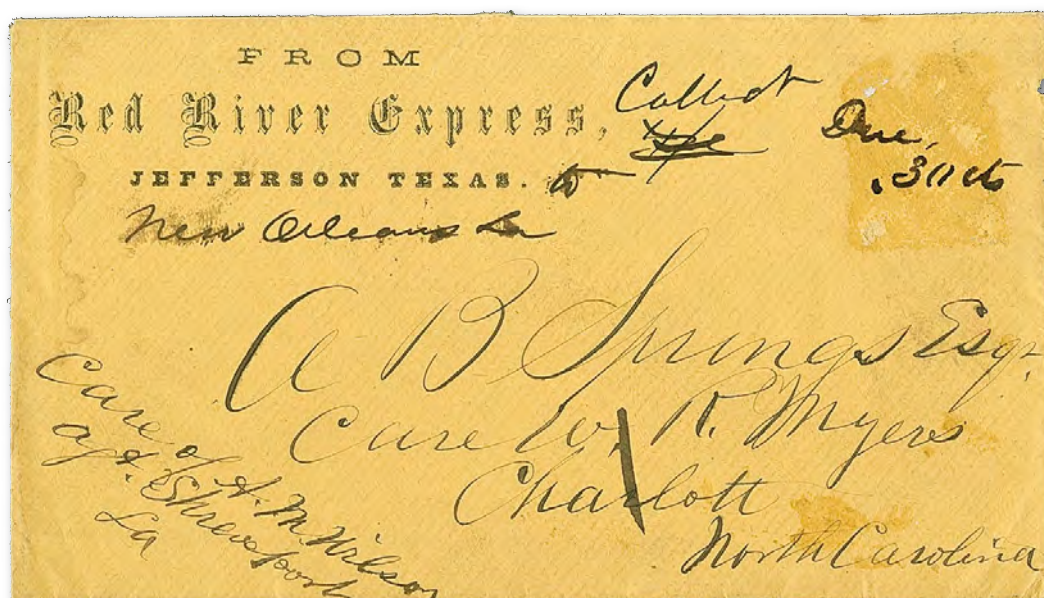 FROM
Red River Express,
JEFFERSON TEXAS. to
New Orleans La
Collect
Due,
.30 cts
A B Springs Esqr.
Care W. R. Myers
Charlott
North Carolina
Care of A. M. Wilson
agt. Shreveport
La